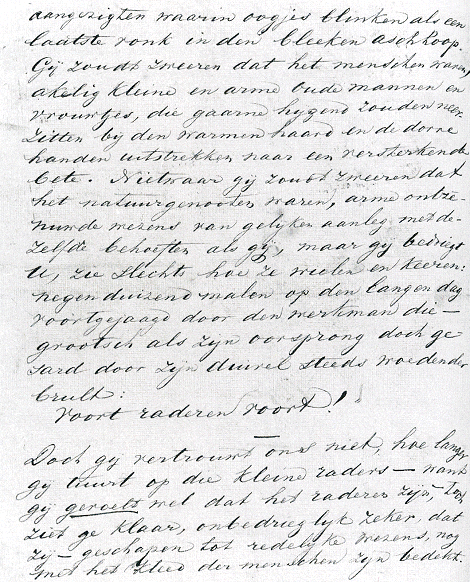 aangezigten waarin oogjes blinken als een
laatste vonk in den bleeken aschhoop.
Gij zoudt zweeren dat het menschen waren,
akelig kleine en arme oude mannen en
vrouwtjes, die gaarne hygend zouden neer
zitten by den warmen haard en de dorre
handen uitstrekken naar een versterkende
bete. Nietwaar gij zoudt zweeren dat
het natuurgenooten waren, arme ontze-
nuwde wezens van gelyken aanleg, met de-
zelfde behoeften als gij, maar gij bedriegt
U, zie slechts hoe ze wielen en keeren:
negenduizend malen op den langen dag
voortgejaagd door den werkman die —
grootsch als zyn oorsprong doch ge
sard door zijn duivel steeds woedender
brult:
Voort raderen voort!
—
Doch gy vertrouwt ons niet, hoe langer
gy tuurt op die kleine raders — want
gij gevoelt wel dat het raderen zijn,
ziet ge klaar, onbedrieglyk zeker, dat
zij — geschapen tot redelyke wezens, nog
met het kleed der menschen zijn bedekt.